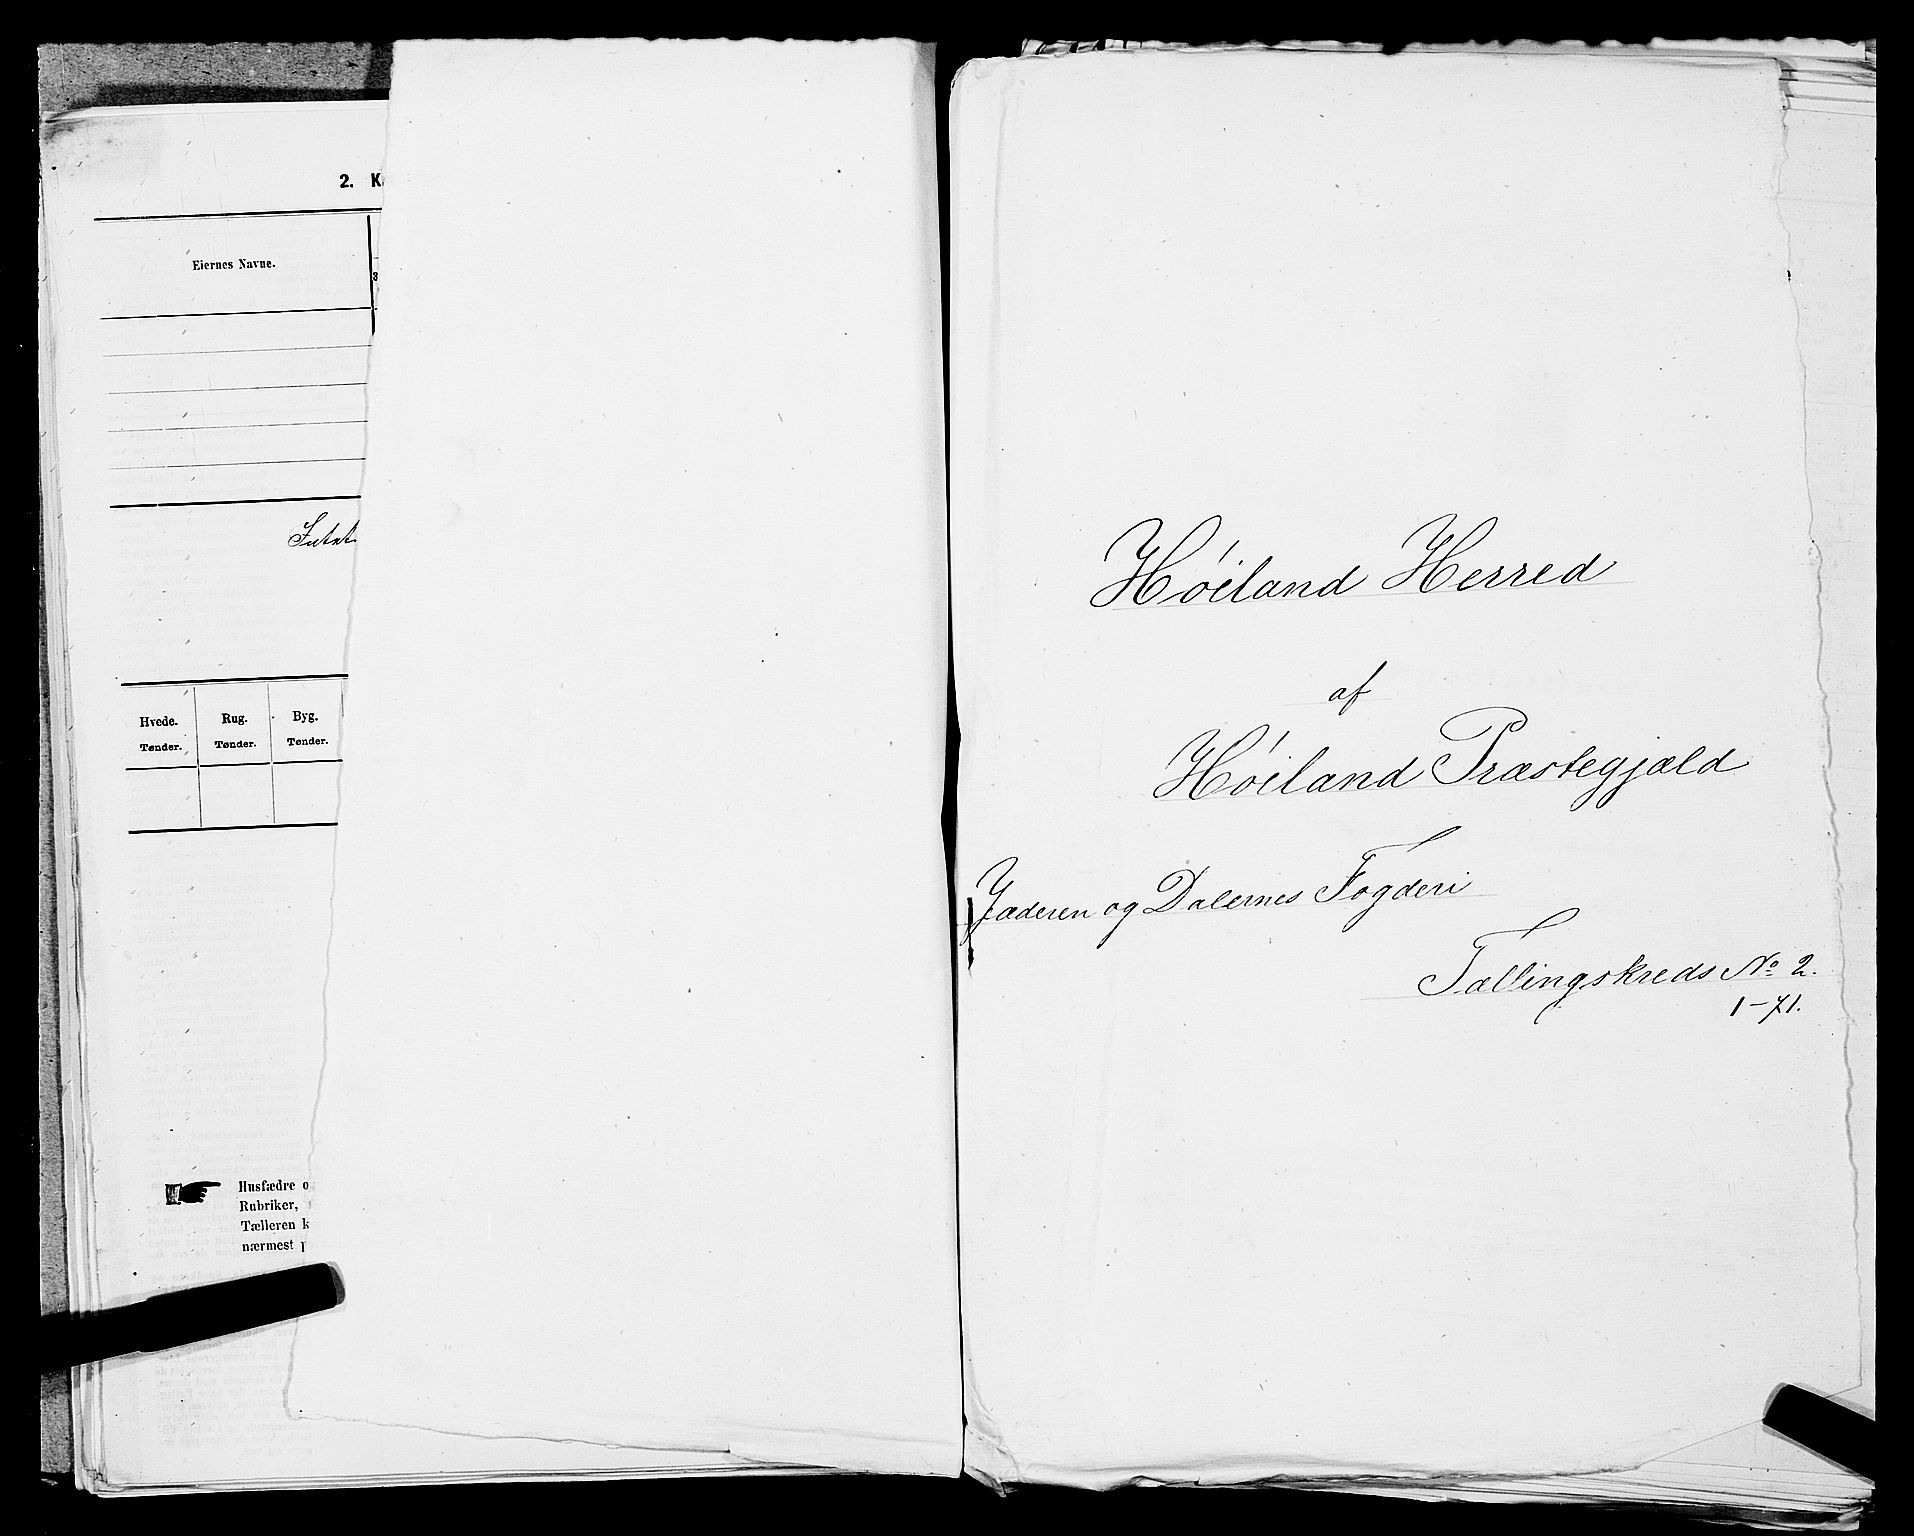 2. K
Eiernes Navne.
Intet
Hvede. Rug. Byg.
Tønder. Tønder. Tønder.
Husfædre o
Rubriker,
Tælleren k
nærmest p
Høiland Herred
af
Høiland Præstegjæld
Jæderen og Dalernes Fogderi
Tællingskreds No 2.
1-71.